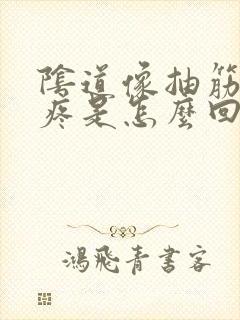 陰道像抽筋
疼是怎麼回
鴻飛青書客